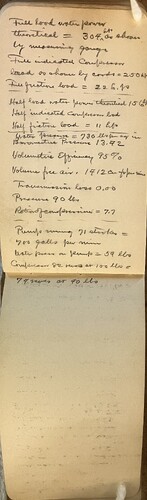 Full load water power
theoretical = 304. as shown
by measuring gauge
Full indicated Compressor
load as shown by cards = 250
Full friction load = 22
Half load water power theoretical 15
Half indicated Compressor load
Half friction load = 11 lbs
Water pressure = 730 lbs
Barometric Pressure 13.92
Volumetric Efficiency 95%
Volume free air. 1912
Transmission loss 0.00
Pressure 90 lbs
Ratio of compression = 7.7
Pump using 71 strokes =
700 galls per min
Water press on pump = 59 lbs
Compressor 82 revs at 100 lbs
79 revs at 90 lbs